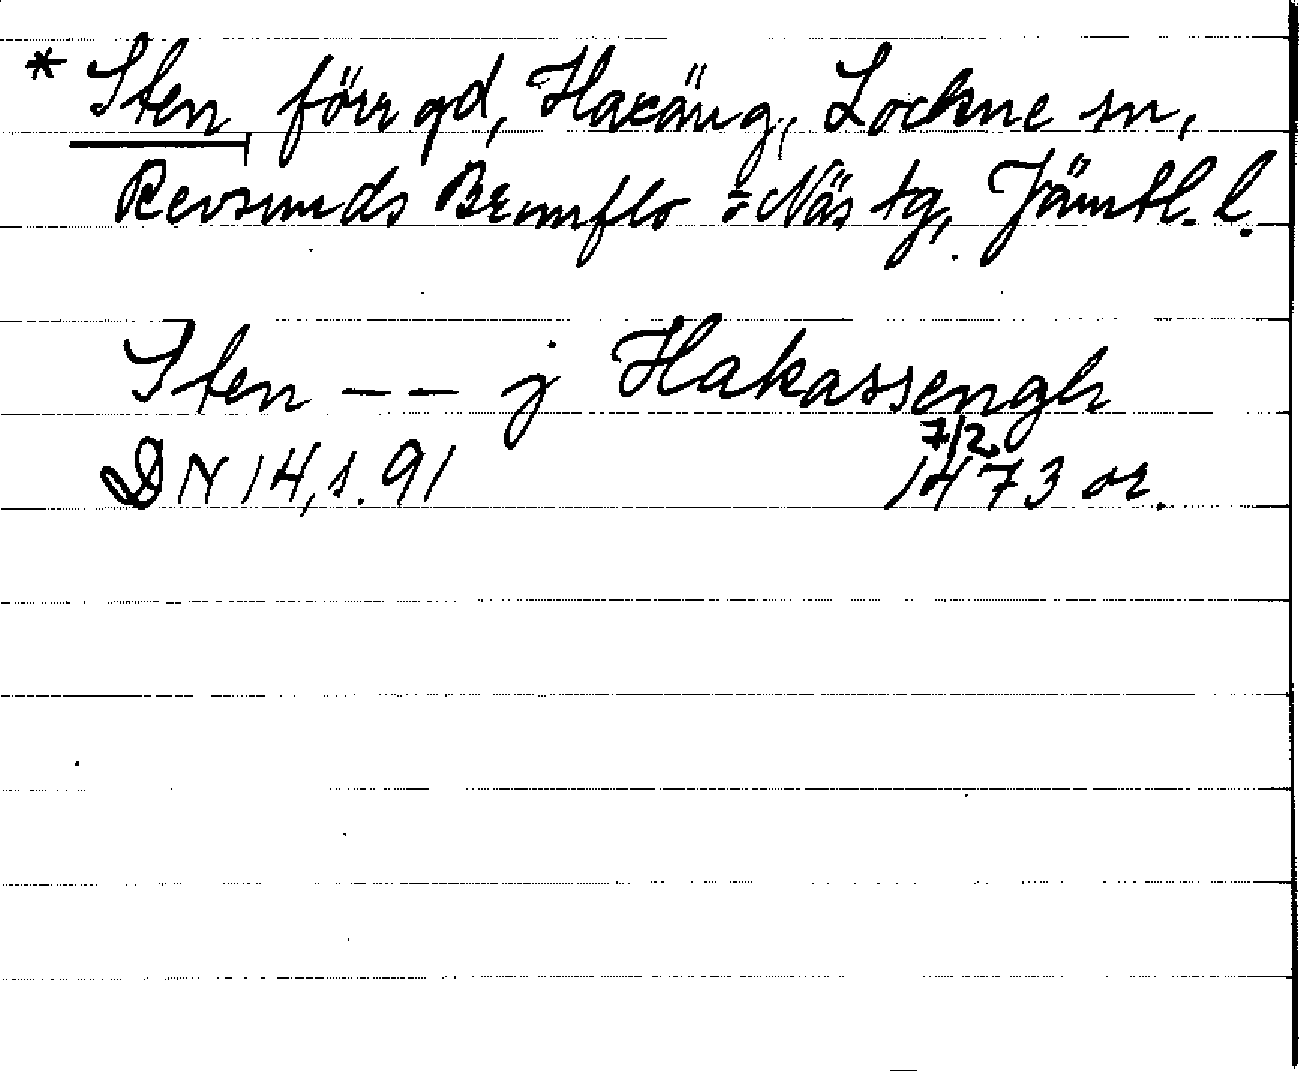 * Sten, förr gd, Haxäng, Lockne sn,
Revsunds Brunflo o Näs tg, Jämtl. l.
Sten -- j Hakassengh
7/2
DN 14, s. 91 1473 or.